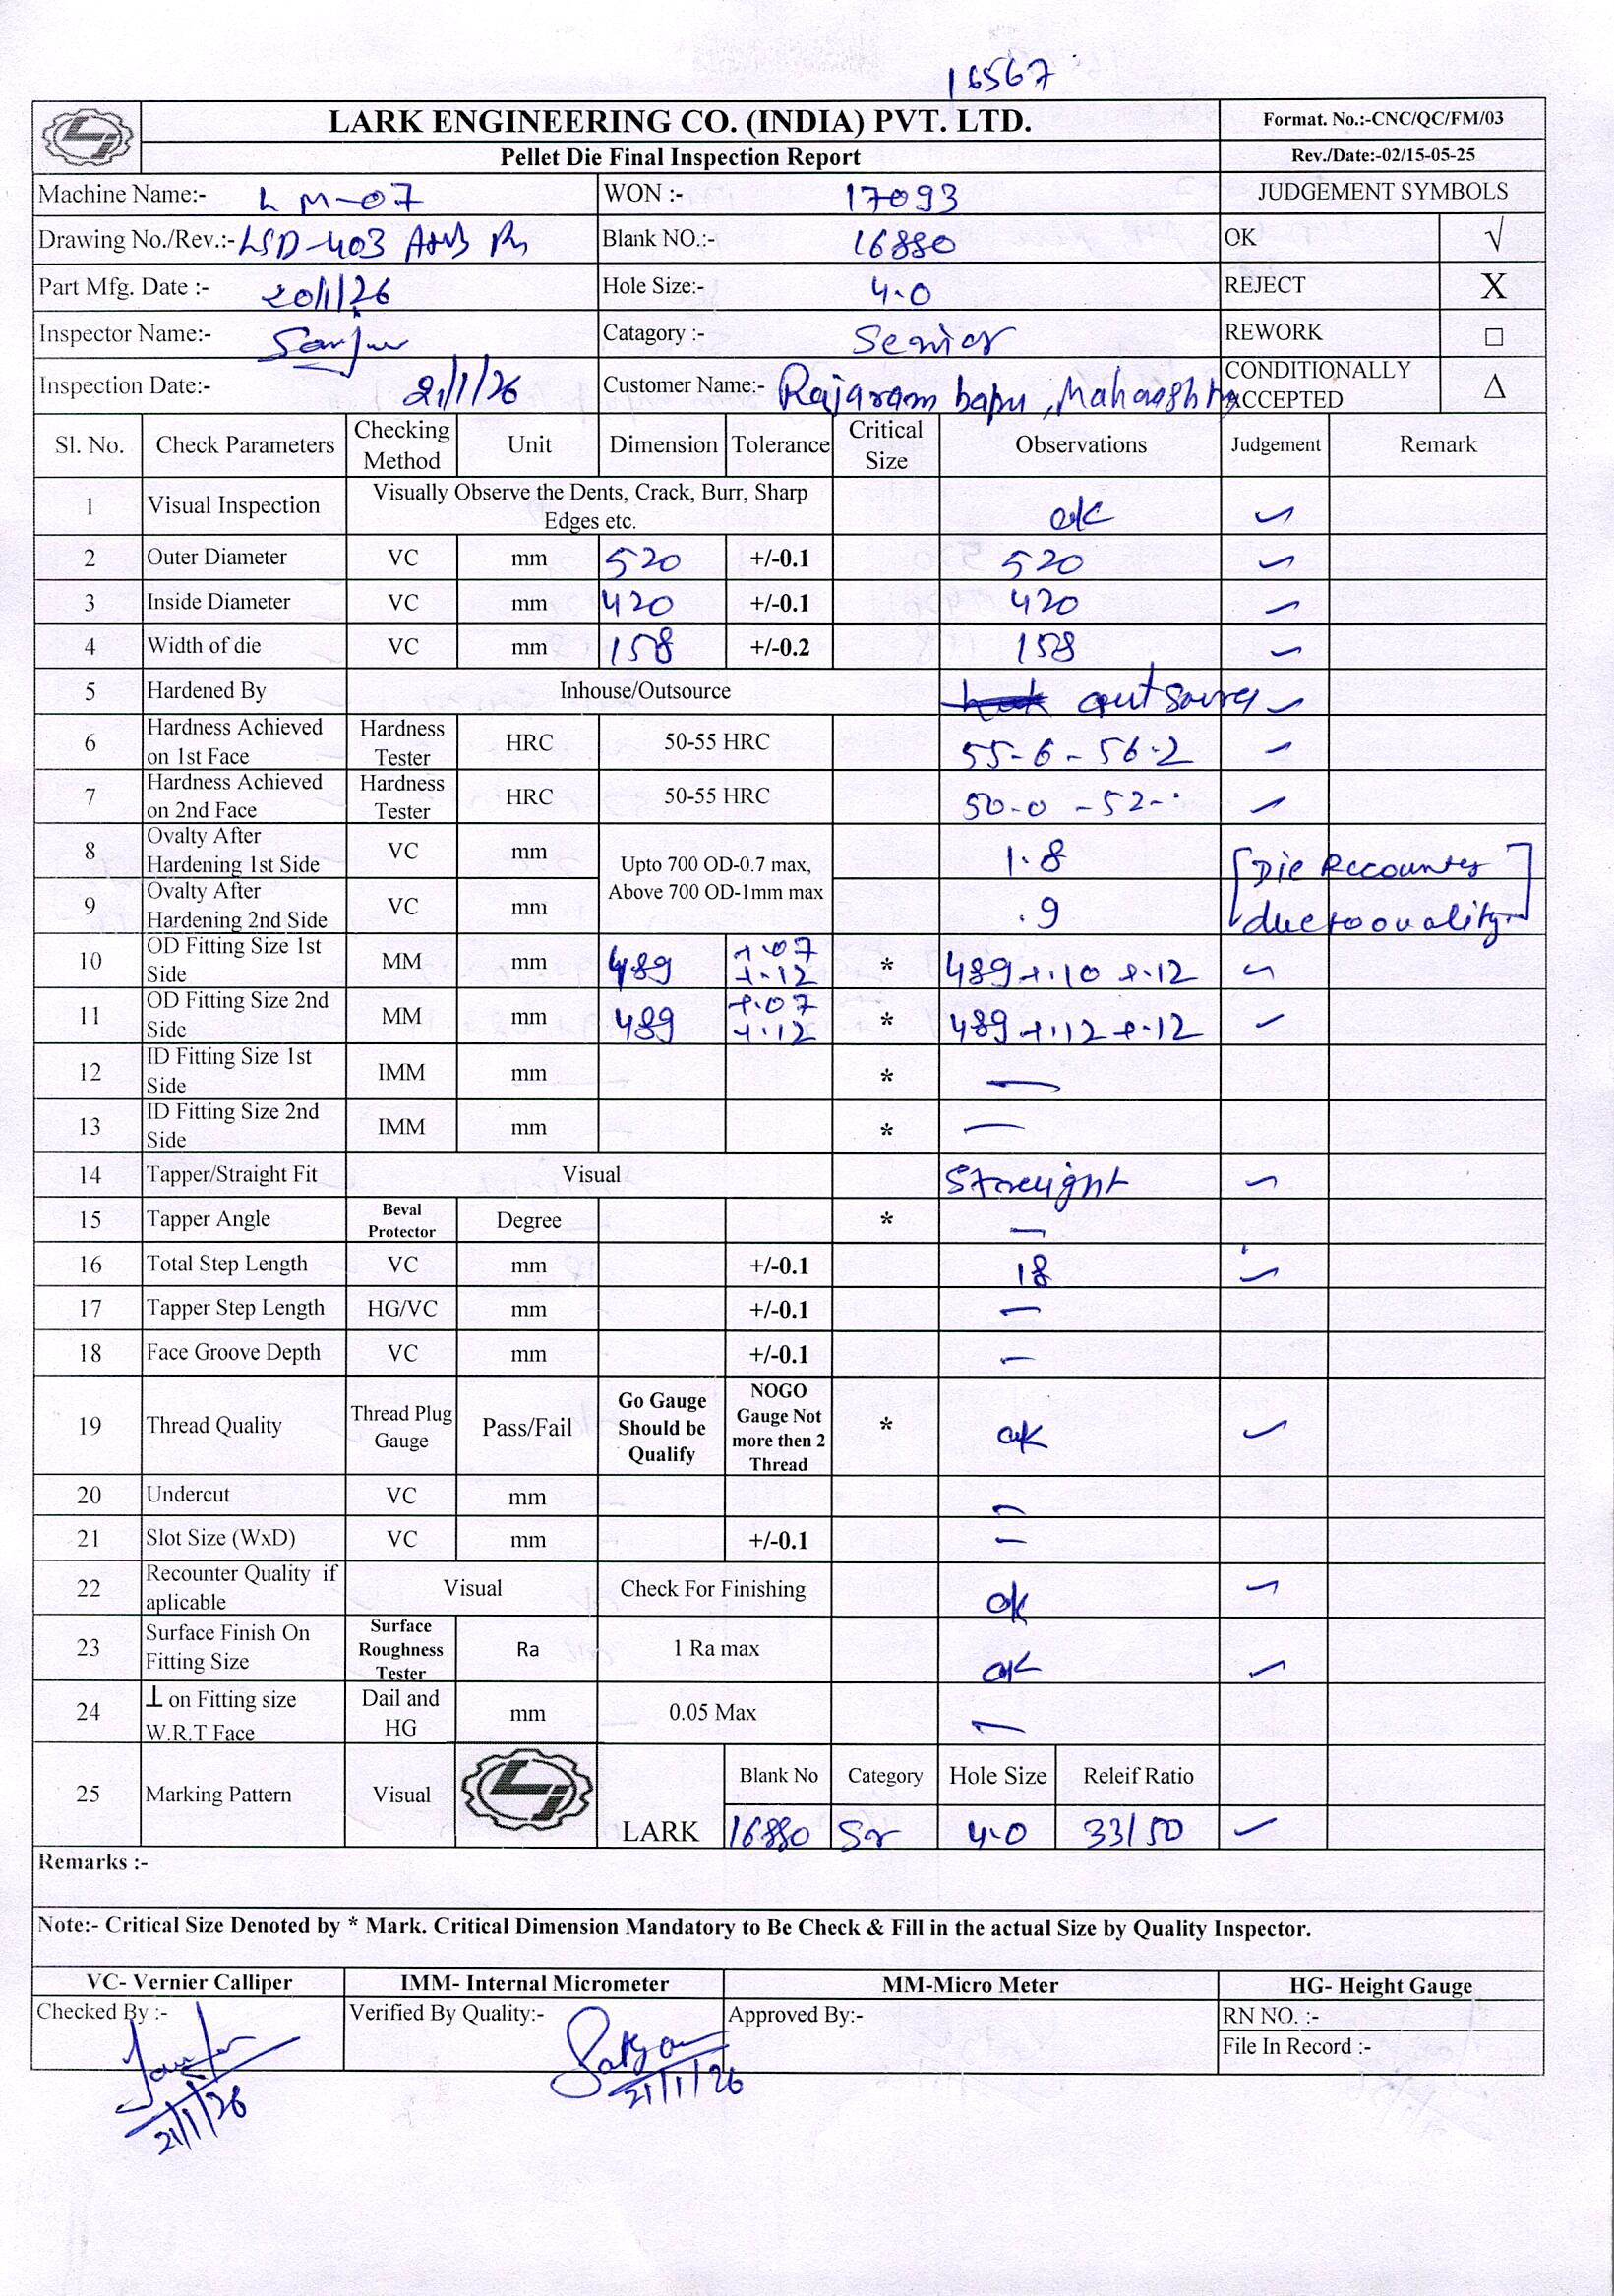 16567
LARK ENGINEERING CO. (INDIA) PVT. LTD.
Format. No.:-CNC/QC/FM/03
Pellet Die Final Inspection Report
Rev./Date:-02/15-05-25
Machine Name:- LM-07 WON :- 17093 JUDGEMENT SYMBOLS
Drawing No./Rev.:- LSD-403 Blank NO.:- 16880 OK √
Part Mfg. Date :- 20/1/26 Hole Size:- 4.0 REJECT X
Inspector Name:- Sanju Catagory :- Senior REWORK □
Inspection Date:- 21/1/26 Customer Name:- Rajaram bapu, Maharashtra CONDITIONALLY ACCEPTED Δ
Sl. No. Check Parameters Checking Method Unit Dimension Tolerance Critical Size Observations Judgement Remark
1 Visual Inspection Visually Observe the Dents, Crack, Burr, Sharp Edges etc. ok
2 Outer Diameter VC mm 520 +/-0.1 520
3 Inside Diameter VC mm 420 +/-0.1 420
4 Width of die VC mm 158 +/-0.2 158
5 Hardened By Inhouse/Outsource
6 Hardness Achieved on 1st Face Hardness Tester HRC 50-55 HRC 55-6 - 56.2
7 Hardness Achieved on 2nd Face Hardness Tester HRC 50-55 HRC 50-0 - 52-
8 Ovalty After Hardening 1st Side VC mm Upto 700 OD-0.7 max, 1.8 [Die Recounter
9 Ovalty After Hardening 2nd Side VC mm Above 700 OD-1mm max .9 due to ovality]
10 OD Fitting Size 1st Side MM mm 489 +.07 +.12 * 489 +.10 +.12
11 OD Fitting Size 2nd Side MM mm 489 +.07 +.12 * 489 +.12 +.12
12 ID Fitting Size 1st Side IMM mm * —
13 ID Fitting Size 2nd Side IMM mm * —
14 Tapper/Straight Fit Visual Straight
15 Tapper Angle Beval Protector Degree * —
16 Total Step Length VC mm +/-0.1 18
17 Tapper Step Length HG/VC mm +/-0.1 —
18 Face Groove Depth VC mm +/-0.1 —
19 Thread Quality Thread Plug Gauge Pass/Fail Go Gauge Should be Qualify NOGO Gauge Not more then 2 Thread * ok
20 Undercut VC mm —
21 Slot Size (WxD) VC mm +/-0.1 —
22 Recounter Quality if aplicable Visual Check For Finishing ok
23 Surface Finish On Fitting Size Surface Roughness Tester Ra 1 Ra max ok
24 ⊥ on Fitting size W.R.T Face Dail and HG mm 0.05 Max —
25 Marking Pattern Visual LARK Blank No Category Hole Size Releif Ratio
16880 Sr 4.0 33/50
Remarks :-
Note:- Critical Size Denoted by * Mark. Critical Dimension Mandatory to Be Check & Fill in the actual Size by Quality Inspector.
VC- Vernier Calliper IMM- Internal Micrometer MM-Micro Meter HG- Height Gauge
Checked By :- Verified By Quality:- Approved By:- RN NO. :-
File In Record :-
21/1/26
21/1/26